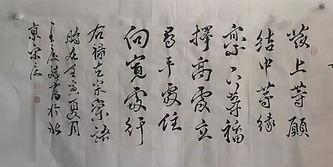 發上等願
結中等緣
享下等福
擇高處立
尋平處住
向寬處行
右錄左宗棠語
夏月
書於北
京宋